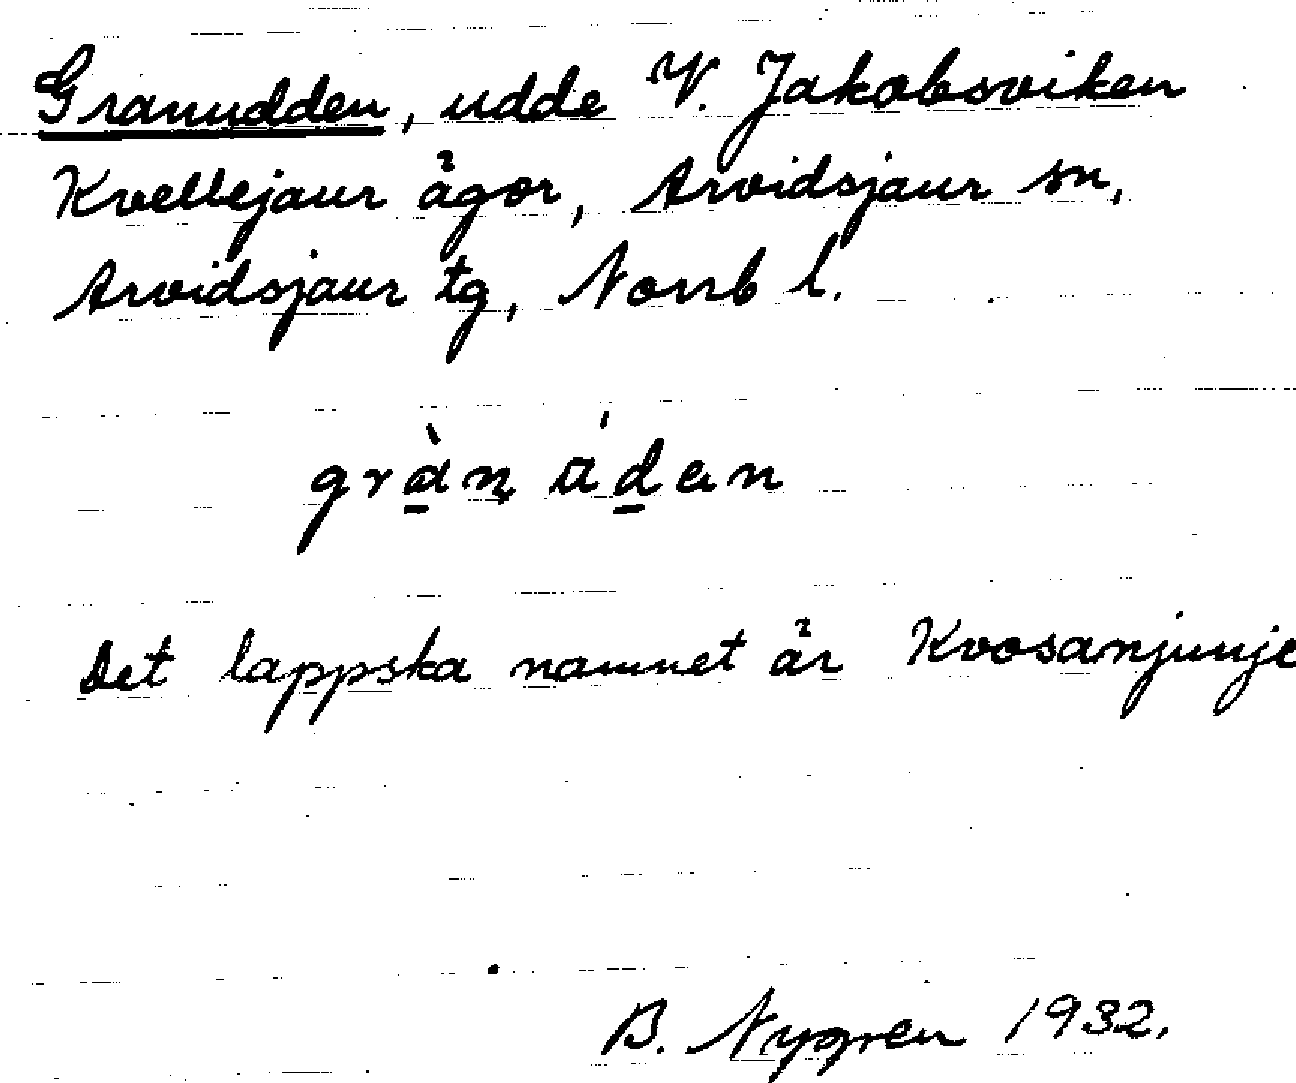 Granudden, udde V. Jakobsviken
Kvellejaur ägor, Arvidsjaur sn,
Arvidsjaur tg, Norrb l.
grànúdan
Det lappska namnet är Kvosanjunje
B. Nygren 1932.